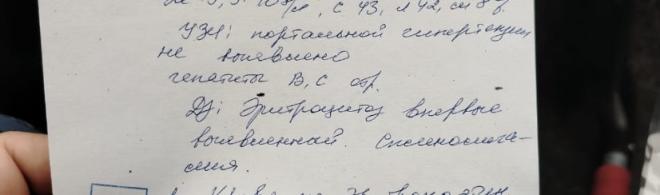 с 43, л 42,
УЗИ: портальной гипертензии
не выявлено
гепатиты В, С отр.
Ds: Эритроцитоз впервые
выявленный. Спленомега-
лия.